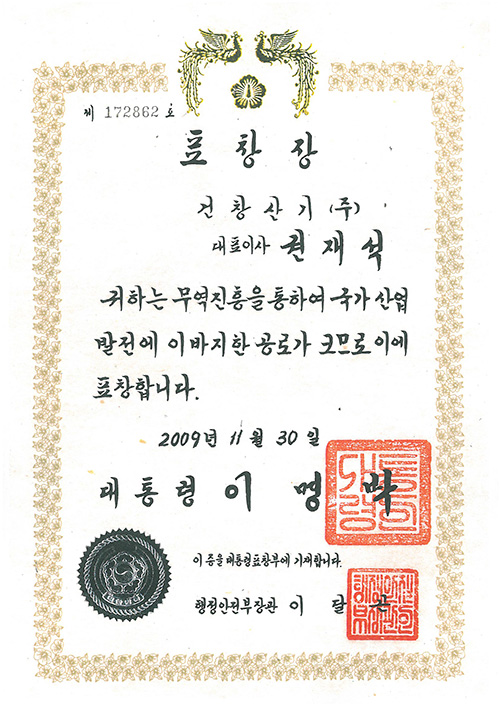 제 172862 호
표창장
건창산기(주)
대표이사 권재석
귀하는 무역진흥을 통하여 국가 산업
발전에 이바지한 공로가 크므로 이에
표창합니다.
2009년 11월 30일
대통령 이명박
이 증을 대통령표창부에 기재합니다.
행정안전부장관 이달곤